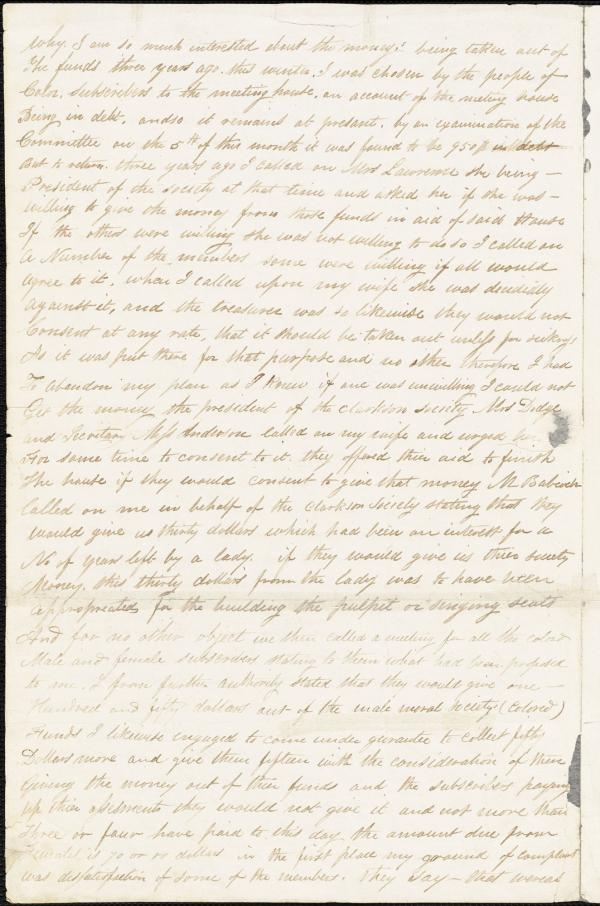 Why. I am so much interested about the money? being taken out of
The funds three years ago. this winter. I was chosen by the people of
Colr. subscribers to the meeting house. on account of the meeting house
Being in debt. and so it remains at present. by an examination of the
Committee on the 5th of this month it was found to be 950$ in debt
But to return. three years ago I called on Mrs Lawrence she being –
President of the society at that time and asked her if she was –
willing to give the money from those funds in aid of said House
If the others were willing she was not willing to do so I called on
a Number of the members some were willing if all would
agree to it. when I called upon my wife she was deadily
against it, and the treasurer was so likewise they would not
Consent at any rate, that it should be taken out unless for
As it was put there for that purpose and no other therefore I had
To abandon my plan as I knew if one was unwilling I could not
Get the money, the president of the clarkson society Mrs Dodge
and Secretary Miss Anderson called on my wife and urged her
For some time to consent to it. they offered their aid to finish
The house if they would consent to give that money M Babcock
Called on me in behalf of the clarkson Society stating that they
would give us thirty dollars which had been on interest for a
No of years left by a lady. if they would give us their society
Money. this thirty dollars from the lady was to have been
appropriated for the building the pulpit or singing seats
And for no other object we then called a meeting for all the colord
Male and female subscribers stating to them what had been proposed
to me. I from further authority stated that they would give one –
Hundred and fifty dollars out of the male moral society (colored)
Funds I likewise engaged to come under gurantee to collect fifty
Dollars more and give them fifteen with the consideration of their
Giving the money out of their funds and the subscribers paying
up their assesments they would not give it and not more than
three or four have paid to this day. the amount due from
is 70 or 80 dollars in the first place my ground of complaint
was dissatisfaction of some of the members. They say – that whereas